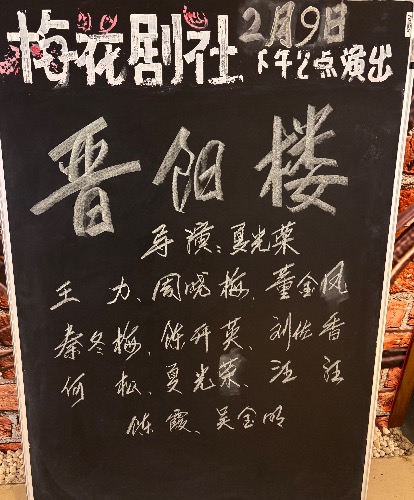 梅花剧社 2月9日
下午2点演出
晋阳楼
导演：夏光荣
王力、周晓梅、董金凤
秦冬梅、陈开英、刘佐香
何松、夏光荣、汪
陈霞、吴金明